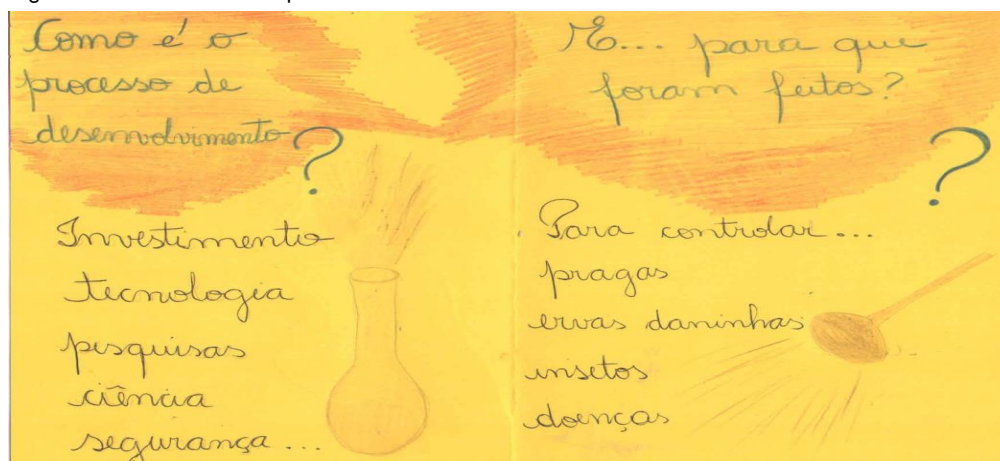 Como é o
processo de
desenvolvimento?
Investimento
tecnologia
pesquisas
ciência
segurança...
E... para que
foram feitos?
?
Para controlar...
pragas
ervas daninhas
insetos
doenças